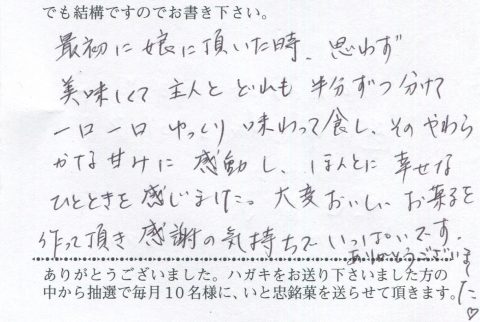 でも結構ですのでお書き下さい。
最初に娘に頂いた時、思わず
美味しくて主人とどれも半分ずつ分けて
一口一口ゆっくり味わって食し、そのやわら
かな甘みに感動し、ほんとに幸せな
ひとときを感じました。大変おいしいお菓子を
作って頂き感謝の気持ちでいっぱいです。
ありがとうございました♡
ありがとうございました。ハガキをお送り下さいました方の
中から抽選で毎月10名様に、いと忠銘菓を送らせて頂きます。